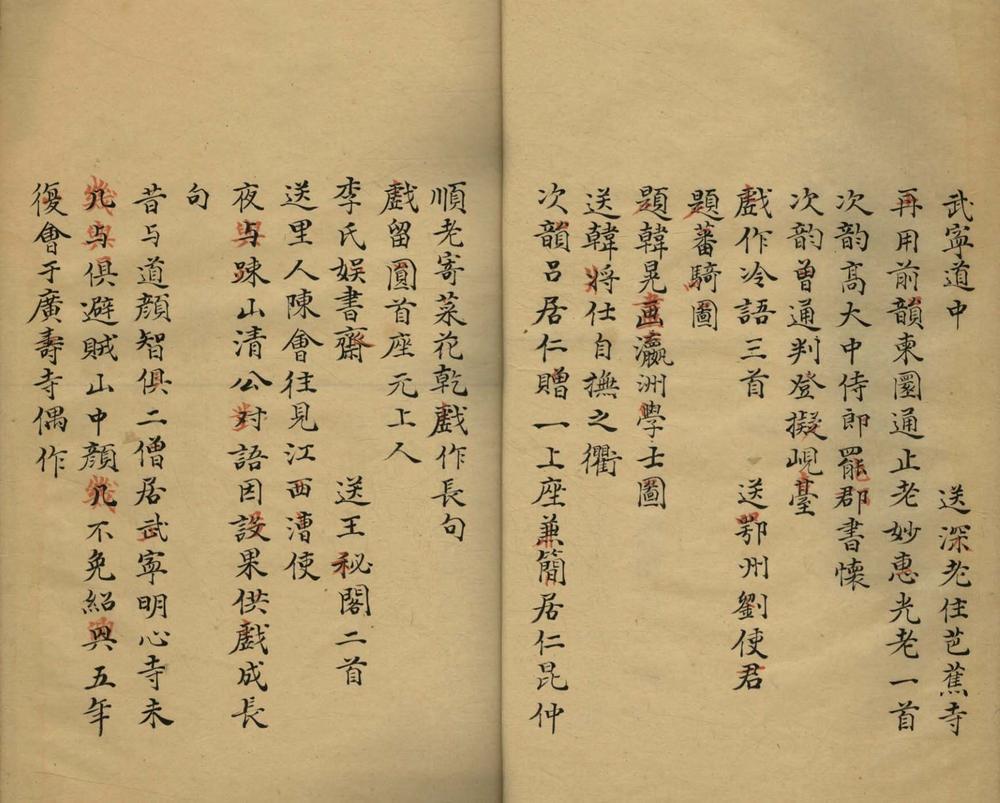 武寧道中　送深老住芭蕉寺
再用前韻柬圜通止老妙惠光老一首
次韵髙大中侍郎罷郡書懷
次韵曽通判登擬峴臺
戲作冷語三首　送鄂州劉使君
題蕃騎圖
題韓晃畫瀛洲學士圖
送韓將仕自撫之衢
次韻呂居仁贈一上座兼簡居仁昆仲
順老寄菜花乾戲作長句
戲留圓首座元上人
李氏娛書齋　送王秘閣二首
送里人陳會往見江西漕使
夜与踈山清公对語因設果供戲成長
句
昔与道顔智俱二僧居武寧明心寺未
几与俱避賊山中顔几不免紹興五年
復會于廣壽寺偶作